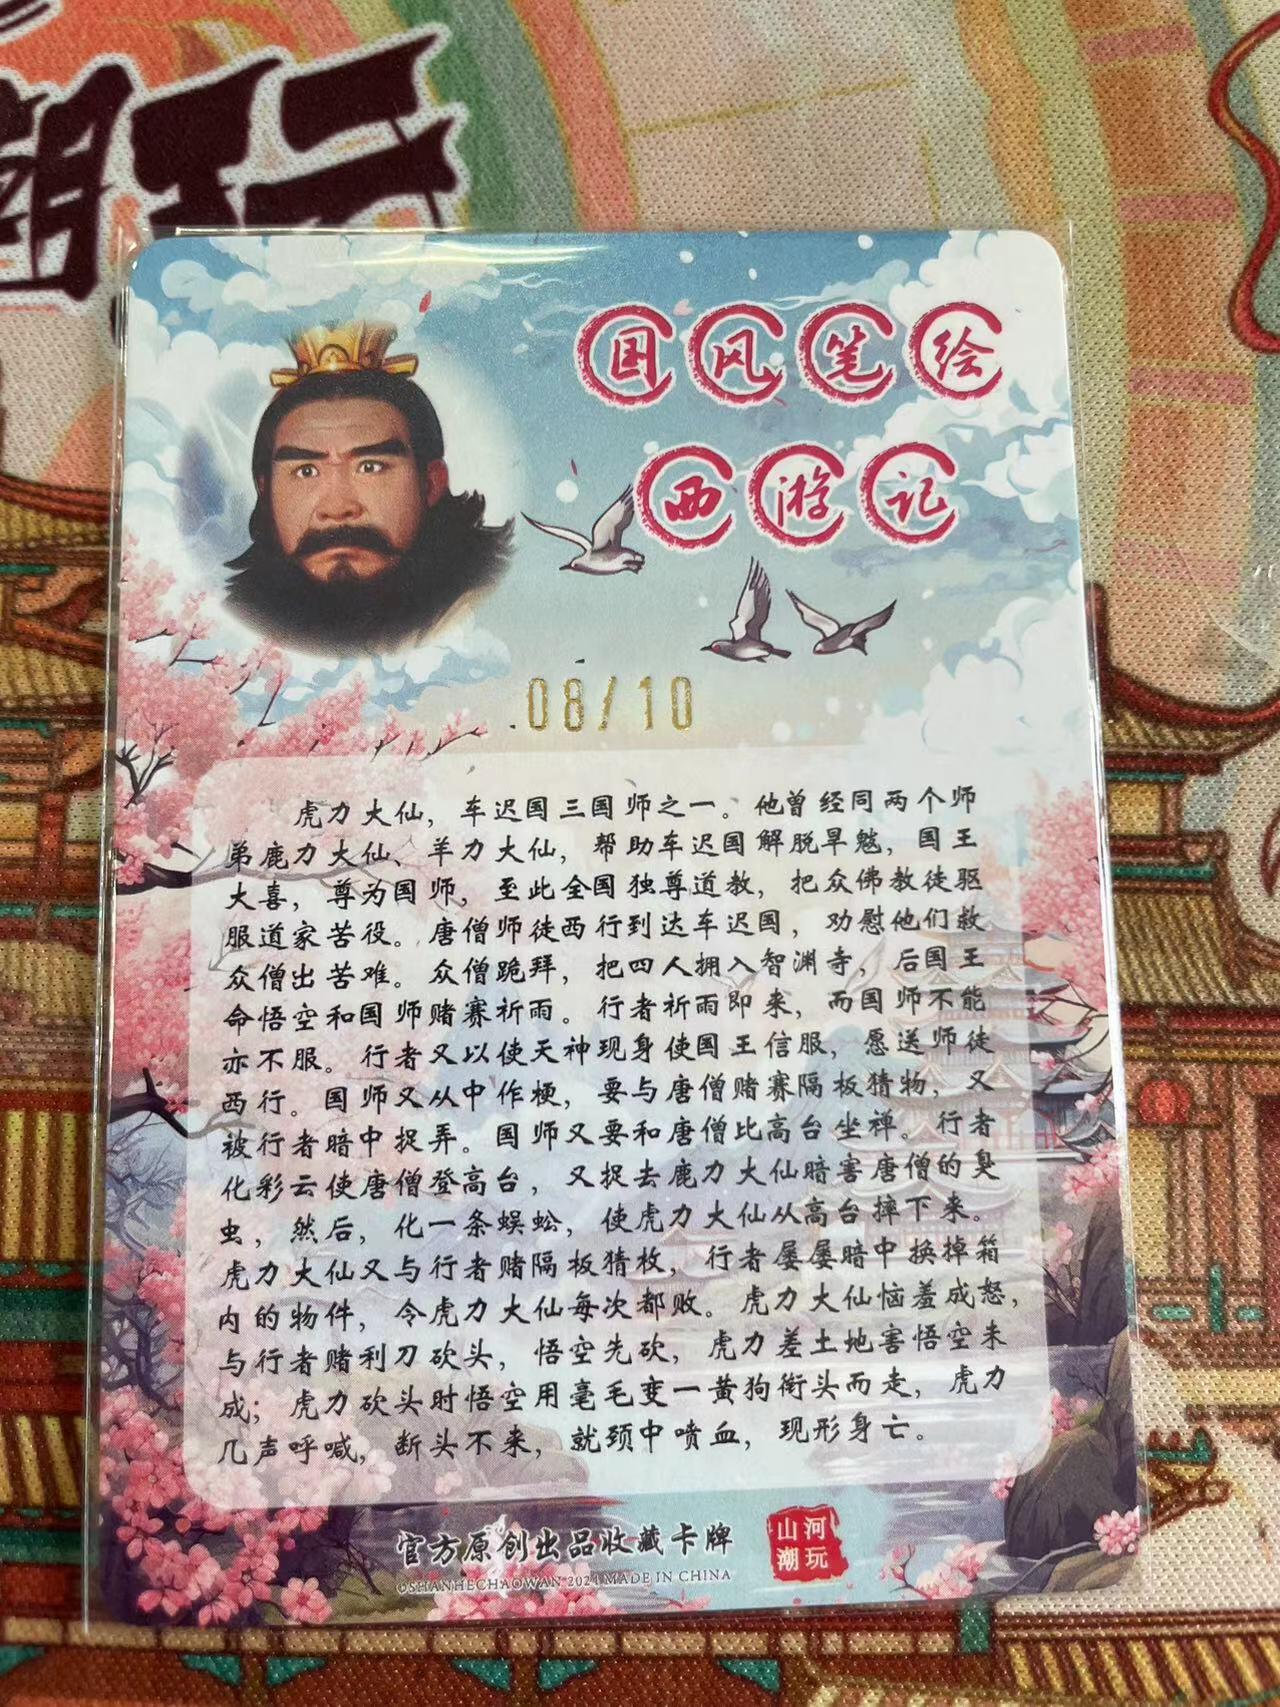 潮玩
国风笔绘
西游记
08/10
虎力大仙，车迟国三国师之一。他曾经同两个师
弟鹿力大仙、羊力大仙，帮助车迟国解脱旱魃，国王
大喜，尊为国师，至此全国独尊道教，把众佛教徒驱
服道家苦役。唐僧师徒西行到达车迟国，劝慰他们救
众僧出苦难。众僧跪拜，把四人拥入智渊寺，后国王
命悟空和国师赌赛祈雨。行者祈雨即来，而国师不能
亦不服。行者又以使天神现身使国王信服，愿送师徒
西行。国师又从中作梗，要与唐僧赌赛隔板猜物，又
被行者暗中捉弄。国师又要和唐僧比高台坐禅。行者
化彩云使唐僧登高台，又捉去鹿力大仙暗害唐僧的臭
虫，然后，化一条蜈蚣，使虎力大仙从高台摔下来。
虎力大仙又与行者赌隔板猜枚，行者屡屡暗中换掉箱
内的物件，令虎力大仙每次都败。虎力大仙恼羞成怒，
与行者赌利刀砍头，悟空先砍，虎力差土地害悟空未
成；虎力砍头时悟空用毫毛变一黄狗衔头而走，虎力
几声呼喊，断头不来，就颈中喷血，现形身亡。
官方原创出品收藏卡牌
山河
潮玩
©SHANHECHAOWAN 2024 MADE IN CHINA